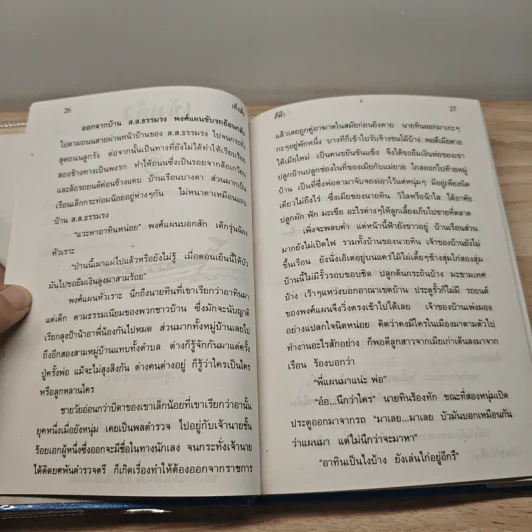 26
เต็งลั้ง
ออกจากบ้าน ส.ส.ธรรมรง พงศ์แผนขับรถย้อนกลับ
ไปตามถนนสายผ่านหน้าบ้านของ ส.ส.ธรรมรง ไปจนกระทั่ง
สุดถนนลูกรัง ต่อจากนั้นเป็นทางที่ยังไม่ได้ทำให้เรียบร้อย
สองข้างทางเป็นพงรก ทำให้ถนนซึ่งเป็นรอยจากล้อเกวียน
และล้อรถยนต์ค่อนข้างแคบ บ้านเรือนบางตา ส่วนมากเป็น
เรือนเล็กกระท่อมน้อยอยู่ห่างๆกัน ไม่หนาตาเหมือนแถบ
บ้าน ส.ส.ธรรมรง
"แวะหาอาทินหน่อย" พงศ์แผนบอกสัก เด็กรุ่นน้อง
หัวเราะ
"ป่านนี้เมาแผ่ไปแล้วหรือยังไม่รู้ เมื่อตอนเย็นนี้ให้บัว
มันไปขอยืมเงินลุงมาสามร้อย"
พงศ์แผนหัวเราะ นึกถึงนายทินที่เขาเรียกว่าอาทินมา
แต่เด็ก ตามธรรมเนียมของพวกชาวบ้าน ซึ่งมักจะนับญาติ
เรียกลุงป้าน้าอาพี่น้องกันไปหมด ส่วนมากทั้งหมู่บ้านเลยไป
ถึงอีกสองสามหมู่บ้านแทบทั้งตำบล ต่างก็รู้จักกันมาแต่ครั้ง
ปู่ครั้งพ่อ แม้จะไม่สุงสิงกัน ต่างคนต่างอยู่ ก็รู้ว่าใครเป็นใคร
หรือลูกหลานใคร
ชายวัยอ่อนกว่าบิดาของเขาเล็กน้อยที่เขาเรียกว่าอานั้น
ยุคหนึ่งเมื่อยังหนุ่ม เคยเป็นพลตำรวจ ไปอยู่กับเจ้านายชั้น
ร้อยเอกผู้หนึ่งซึ่งออกจะมีชื่อในทางนักเลง จนกระทั่งเจ้านาย
ได้ติดยศพันตำรวจตรี ก็เกิดเรื่องทำให้ต้องออกจากราชการ
สีฟ้า
27
แล้วเลยถูกคู่อาฆาตในสมัยก่อนยิงตาย นายทินออกมาเกะๆ
กะๆอยู่พักหนึ่ง บางทีก็เข้าไปรับจ้างขนไม้บ้าง พอดีเมียตาย
ได้เมียใหม่ เป็นคนขยันขันแข็ง จึงได้ขอยืมเงินพ่อของเขา
ปลูกบ้านปลูกช่องในที่ของเมียกับแม่ยาย ไกลออกไปท้ายหมู่
บ้าน เป็นที่ซึ่งพ่อตามาจับจองเอาไว้แต่หนุ่มๆ มีอยู่เพียงนิด
เดียวไม่ถึงไร่ ซึ่งเมียของนายทิน วิไลหรือนิกไล ได้อาศัย
ปลูกผัก พัก มะเขือ อะไรต่างๆให้ลูกเลี้ยงเก็บไปขายที่ตลาด
เพิ่งจะพลบค่ำ แต่หน้านี้ฟ้ายังขาวอยู่ บ้านเรือนส่วน
มากยังไม่เปิดไฟ รวมทั้งบ้านของนายทิน เจ้าของบ้านยังไม่
ขึ้นเรือน ยังนั่งเอ้เตอยู่บนแคร่ไม้ไผ่เตี้ยๆข้างสุมไก่สองสุ่ม
บ้านนี้ไม่มีรั้วรอบขอบชิด ปลูกต้นกระถินบ้าง มะขามเทศ
บ้าง เว้าๆแหว่งบอกอาณาเขตบ้าน ประตูรั้วก็ไม่มี รถยนต์
ของพงศ์แผนจึงวิ่งตรงเข้าไปได้เลย เจ้าของบ้านเพ่งมอง
อย่างแปลกใจนิดหน่อย คิดว่าคงมีใครในเมืองมาตามตัวไป
ทำงานอะไรสักอย่าง ก็พอดีลูกสาวจากเมียเก่าเดินลงมาจาก
เรือน ร้องบอกว่า
"พี่แผนมาแน่ะ พ่อ"
"อ้อ...นึกว่าใคร" นายทินร้องทัก ขณะที่สองหนุ่มเปิด
ประตูออกมาจากรถ "มาเลย...มาเลย บัวมันบอกเหมือนกัน
ว่าแผนมา แต่ไม่นึกว่าจะมาหา"
"อาทินเป็นไงบ้าง ยังเล่นไก่อยู่อีกรึ"